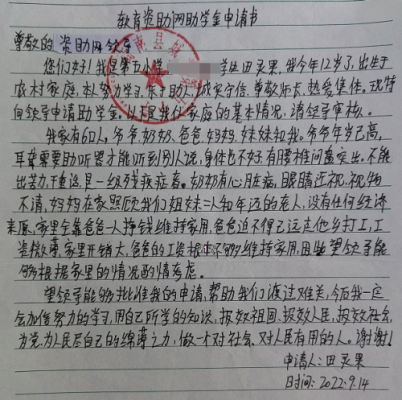 教育资助网助学金申请书
尊敬的资助网领导
您们好！我是第五小学 学生田灵果,我今年12岁了,出生于
农村家庭,本人努力学习,乐于助人,诚实守信,尊敬师长,热爱集体。现特
向领导申请助学金。以下是我们家庭的基本情况,请领导审核。
我家有6口人,爷爷奶奶、爸爸、妈妈、妹妹和我。爷爷年岁已高,
耳聋需要助听器才能听到别人说,身体也不好有腰椎间盘突出,不能
出苦力,干重活,是一级残疾症者。奶奶有心脏病,眼睛近视,视物
不清,妈妈在家照顾我们姐妹二人和年迈的老人,没有任何经济
来原,家里全靠爸爸一人挣钱维持家用,爸爸迫不得己远走他乡打工,工
资微薄,家里开销大,爸爸的工资根本不够维持家用,因此望领导能
够根据家里的情况酌情考虑。
望领导能够批准我的申请,帮助我们渡过难关,今后我一定
会加倍努力的学习,用自己所学的知识,报效祖国,报效人民,报效社会,
为党、为人民尽自己的绵薄之力,做一个对社会、对人民有用的人。谢谢！
申请人:田灵果
时间:2022.9.14